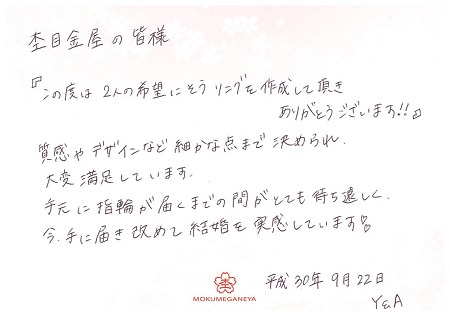 杢目金屋の皆様
『この度は2人の希望にそうリングを作成して頂き
ありがとうございます!!』
質感やデザインなど細かな点まで決められ、
大変満足しています。
手元に指輪が届くまでの間がとても待ち遠しく、
今、手に届き改めて結婚を実感しています
平成30年9月22日
Y&A
MOKUMEGANEYA